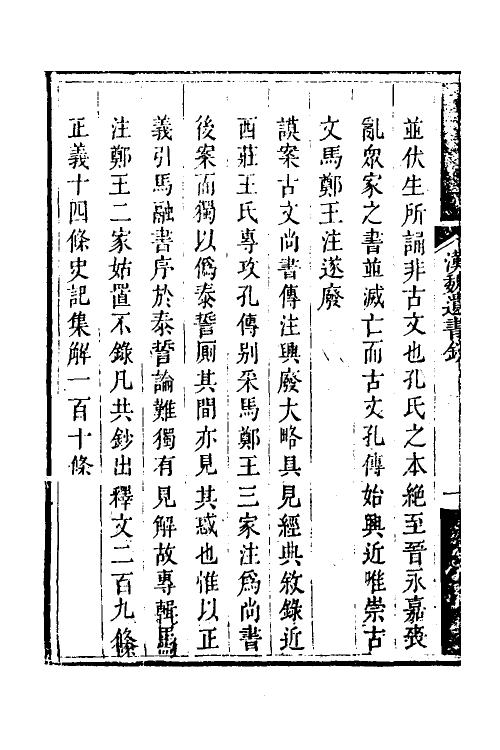 並伏生所誦非古文也孔氏之本絶至晉永嘉喪
亂衆家之書並滅亡而古文孔傳始興近唯崇古
文馬鄭王注遂廢
謨案古文尚書傳注興廢大略具見經典敘錄近
西莊王氏專攻孔傳别采馬鄭王三家注爲尚書
後案而獨以僞泰誓厠其間亦見其惑也惟以正
義引馬融書序於泰誓論難獨有見解故專輯馬
注鄭王二家姑置不錄凡共鈔出釋文二百九條
正義十四條史記集解一百十條
漢魏遺書鈔